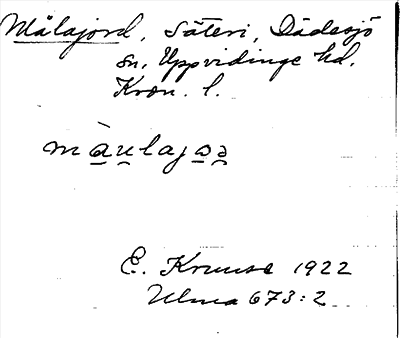 Målajord, Säteri, Dädesjö
sn, Uppvidinge hd,
Kron. l.
màu̯lajɔə
E. Kruuse 1922
Ulma 673:2